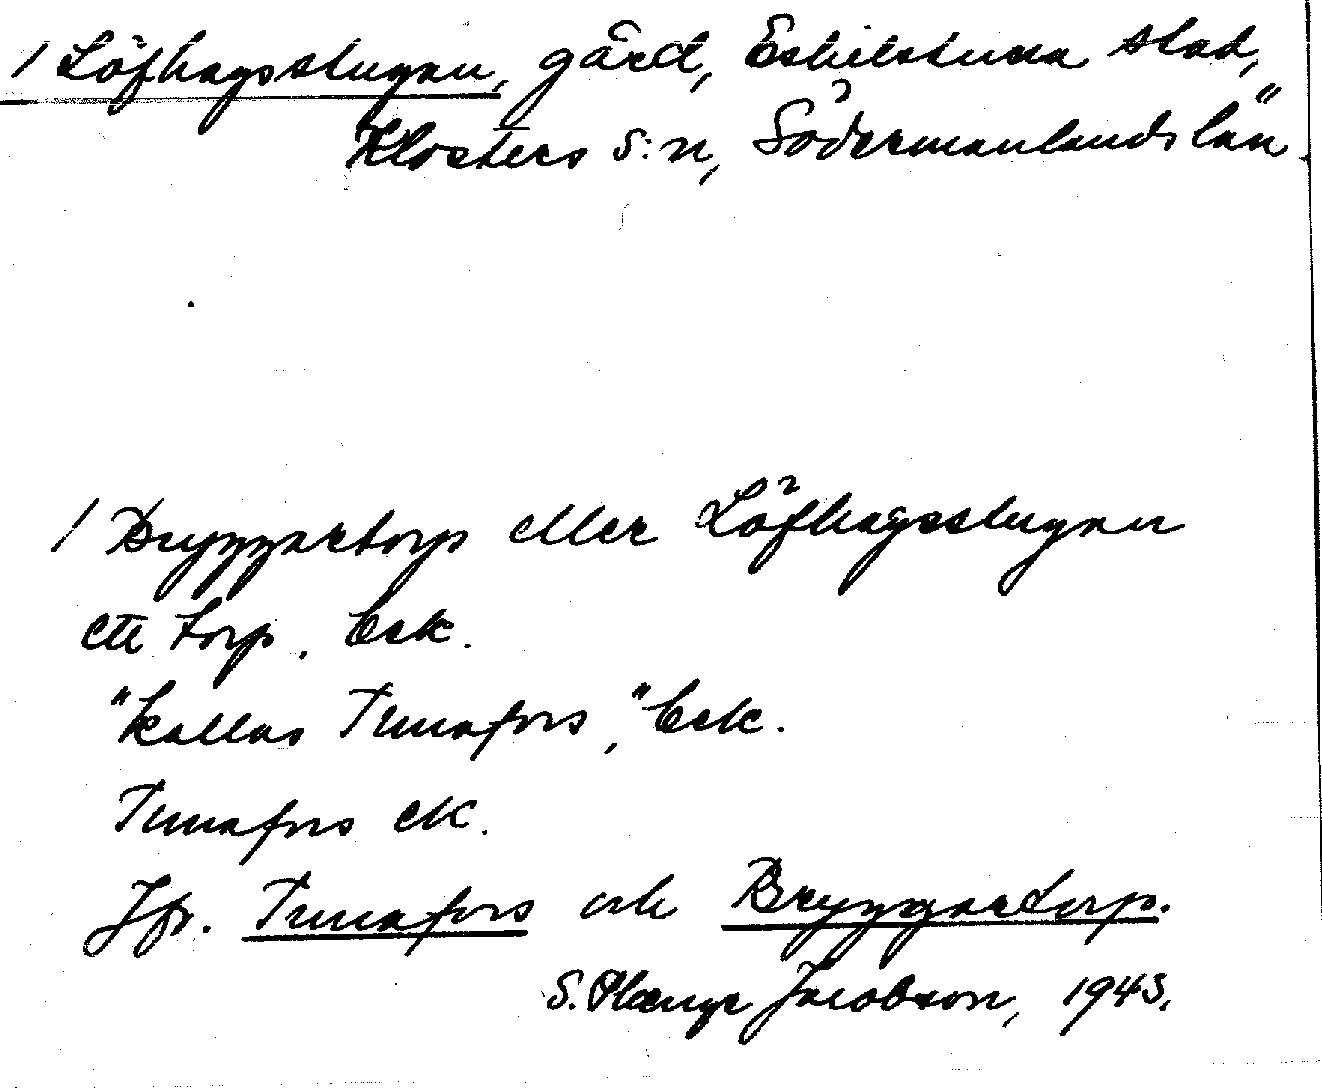 / Löfhagsstugan, gård, Eskilstuna stad,
Klosters s:n, Södermanlands län.
/ Bryggartorp eller Löfhagsstugan
ett torp. Eek.
"kallas Tunafors," Eek.
Tunafors EK.
Jfr. Tunafors och Bryggartorp.
S. Plænge Jacobson, 1943.